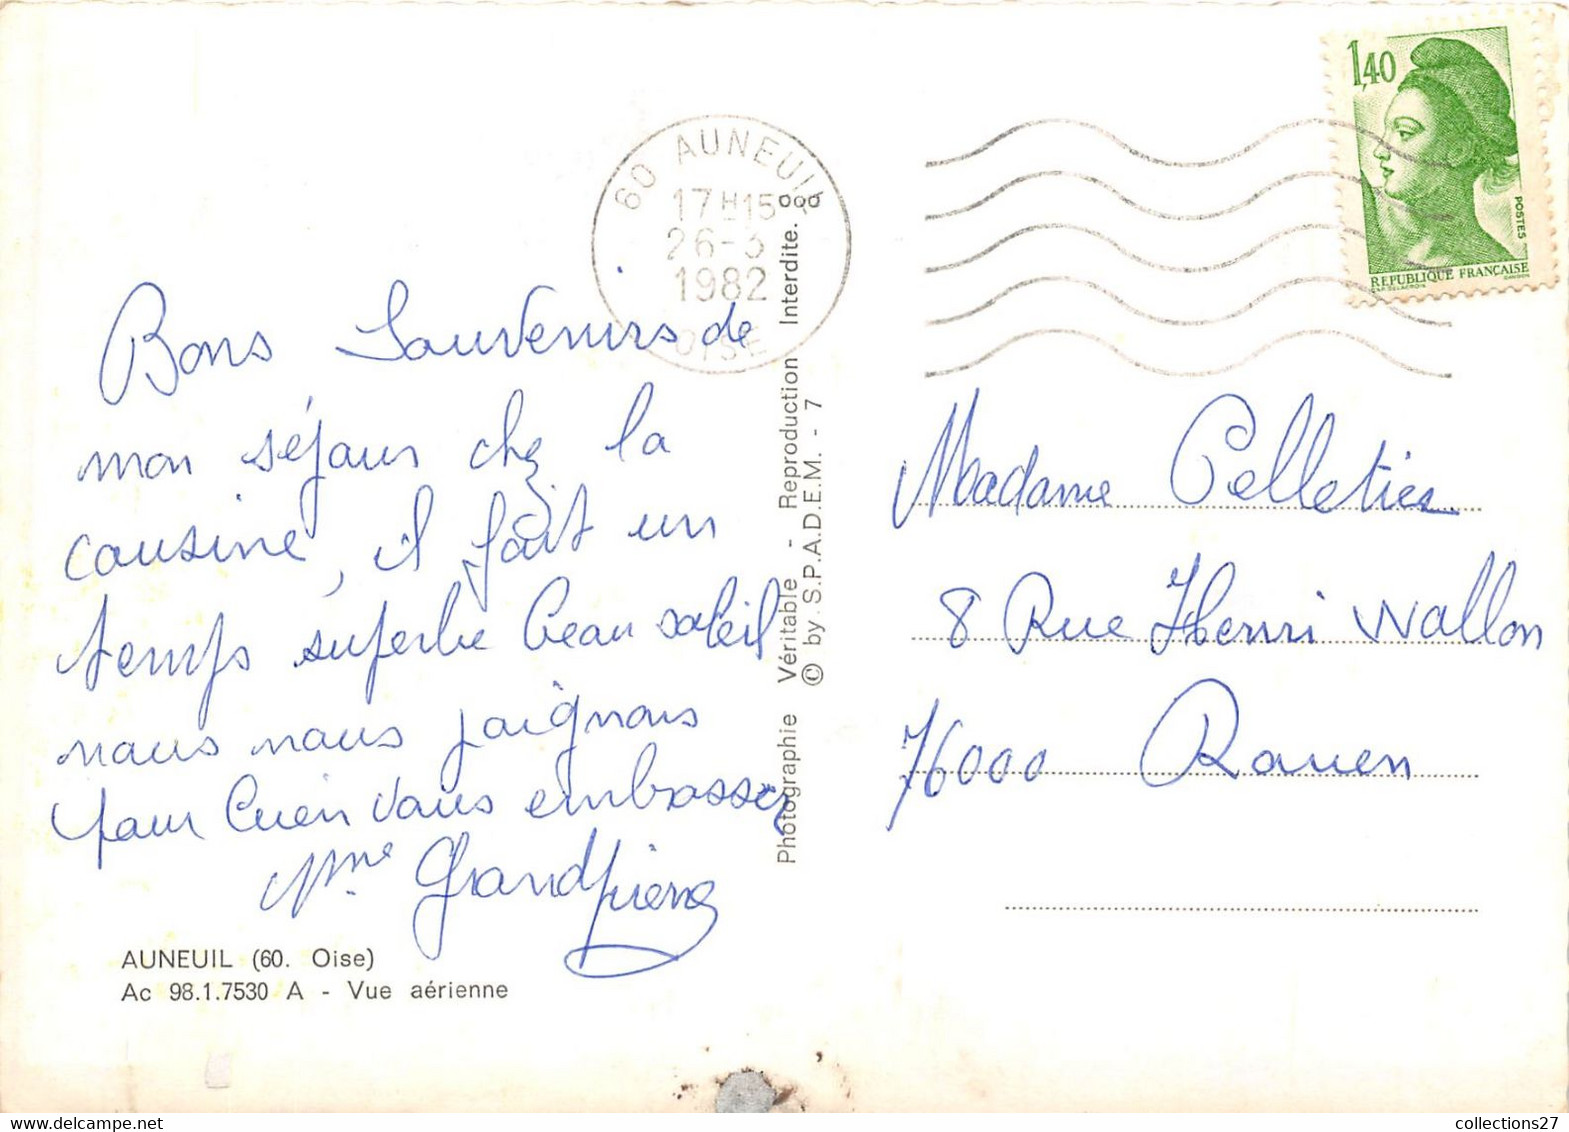 Bons Souvenirs de
mon séjour chez la
cousine, il fait un
temps superbe beau soleil
nous nous joignons
pour bien vous embrasser
Mme Grandpierre
AUNEUIL (60. Oise)
Ac 98.1.7530 A - Vue aérienne
60 AUNEUIL
17H15
26-3
1982
OISE
Photographie Véritable - Reproduction Interdite.
© by S.P.A.D.E.M. - 7
1,40
POSTES
REPUBLIQUE FRANÇAISE
Madame Pelletier
8 Rue Henri Wallon
76000 Rouen
collections27